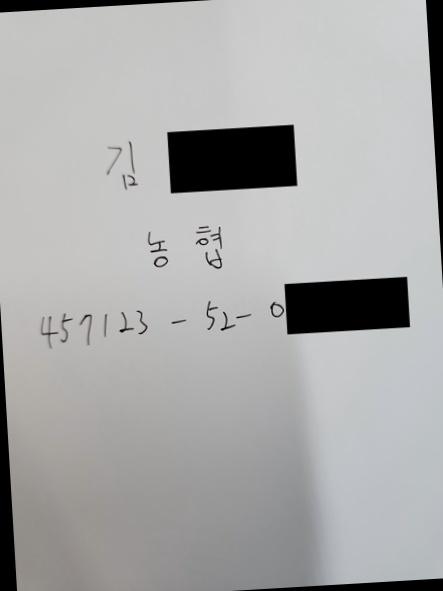 김
농협
457123 - 52 - 0